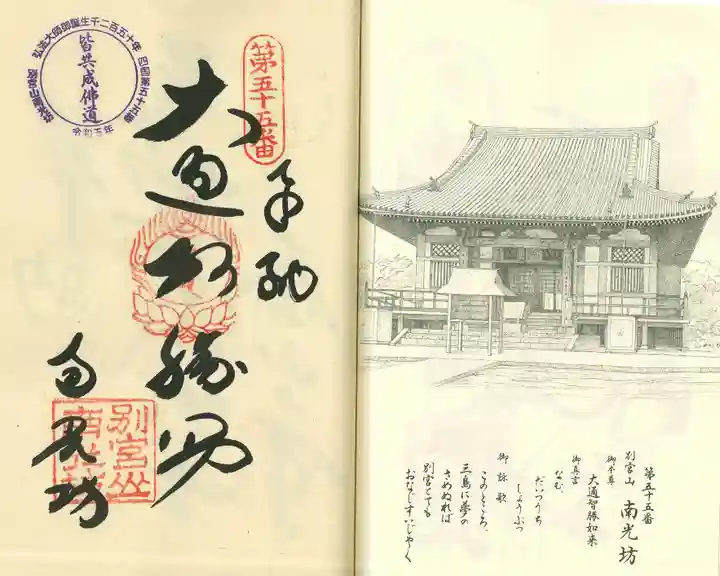 第五十五番
別宮山 南光坊
御本尊
大通智勝如来
御真言
なむ、
だいつうち
しょうぶつ
御詠歌
このところ、
三島に夢の
さめぬれば
別宮とても
おなじすいじゃく
第五十五番
奉納
大通智勝佛
南光坊
別宮山
南光坊
弘法大師御誕生千二百五十年
四国第五十五番
皆共成佛道
令和五年